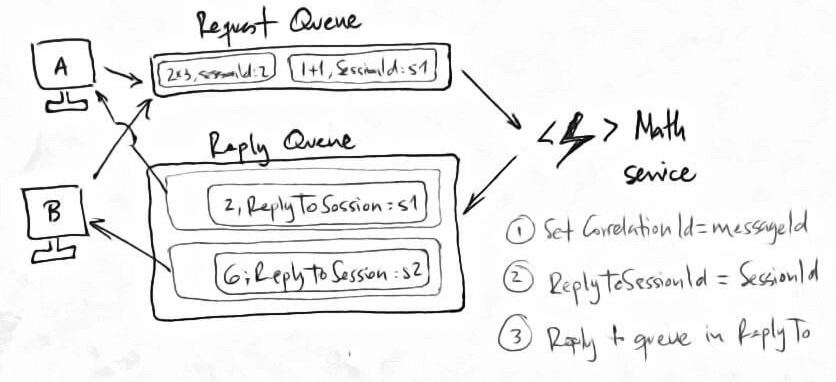 Request Queue
A
2*3, SessionId:2
1+1, SessionId:s1
Reply Queue
B
2, ReplyToSession:s1
6, ReplyToSession:s2
< > Math
service
① Set CorrelationId=messageId
② ReplyToSessionId = SessionId
③ Reply to queue in ReplyTo